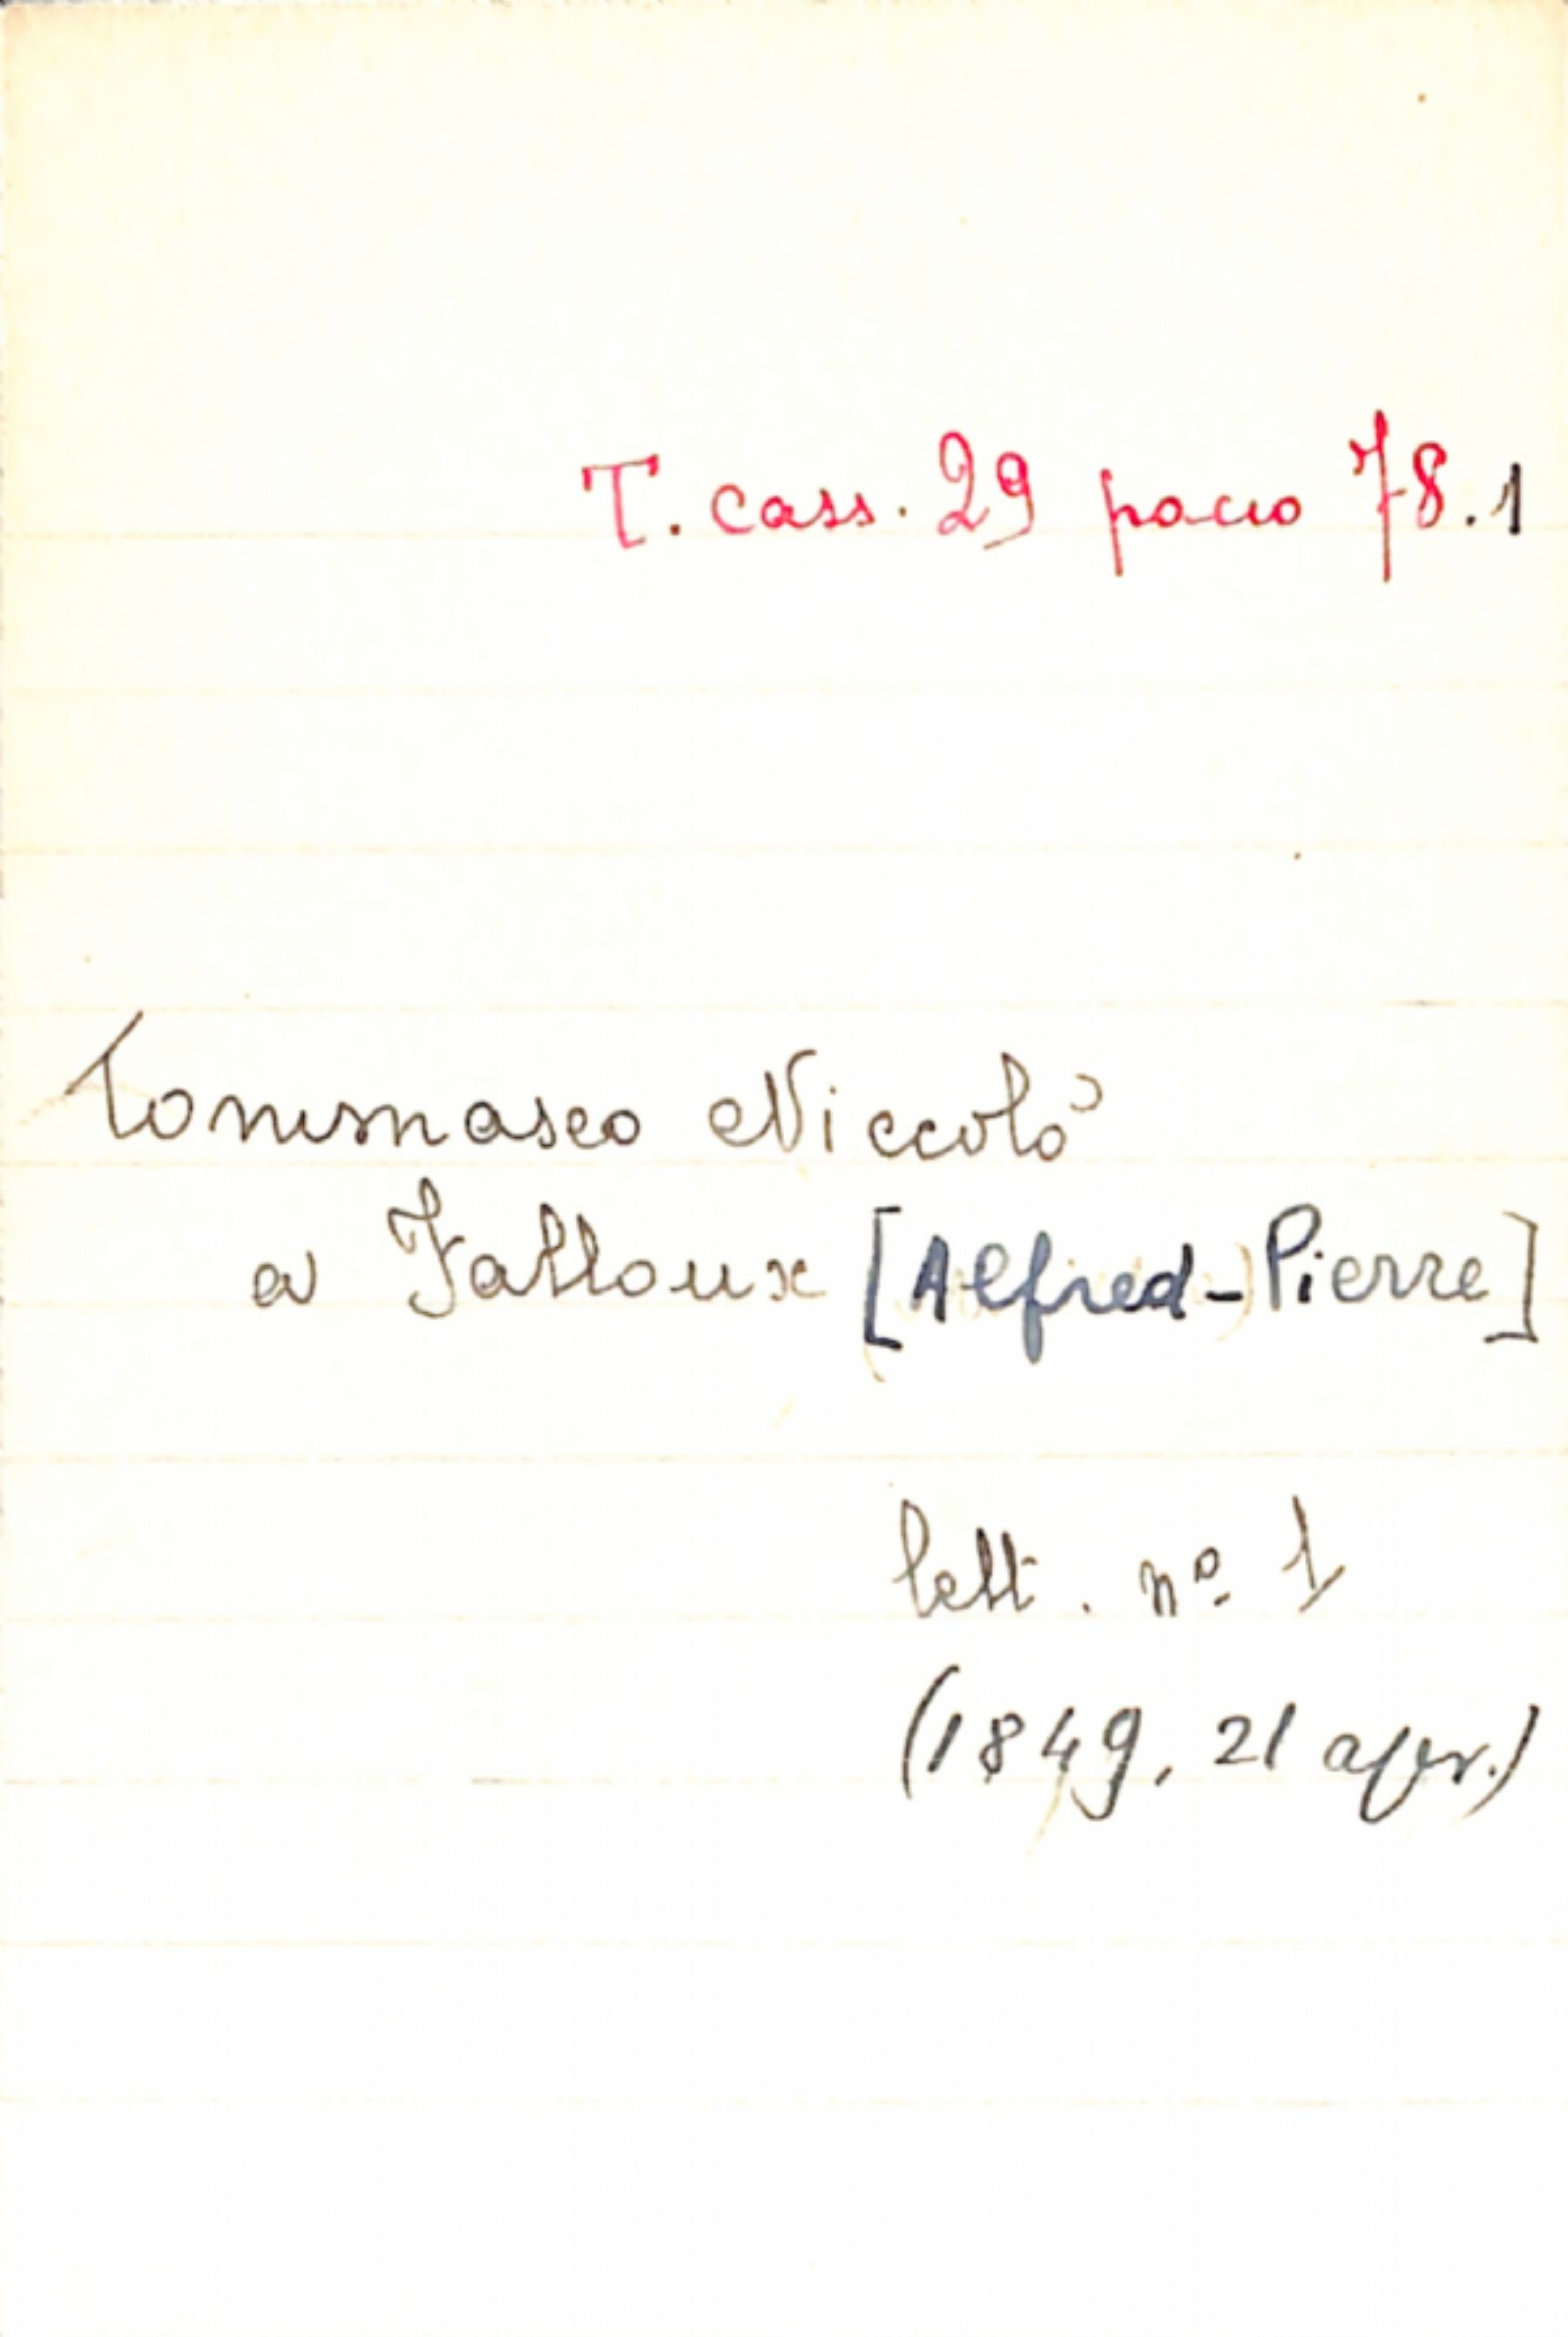 T. cass. 29 pacco 78.1
Tommaseo Niccolò
a Falloux [Alfred-Pierre]
lett. nº 1
(1849, 21 apr.)